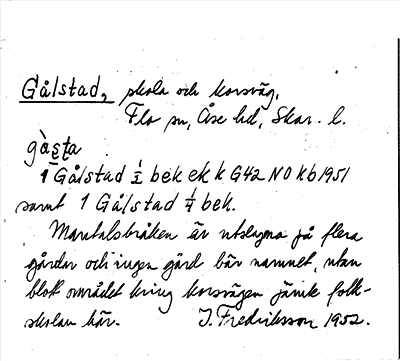 Gålstad, skola och korsväg,
Flo sn, Åse hd, Skar. l.
gàsta
1 Gålstad ½ bek ek k G42 NO kb 1951
samt 1 Gålstad ¼ bek.
Mantalsbråken är utslagna på flera
gårdar och ingen gård bär namnet, utan
blott området kring korsvägen jämte folk-
skolan här. J. Fredriksson 1952.